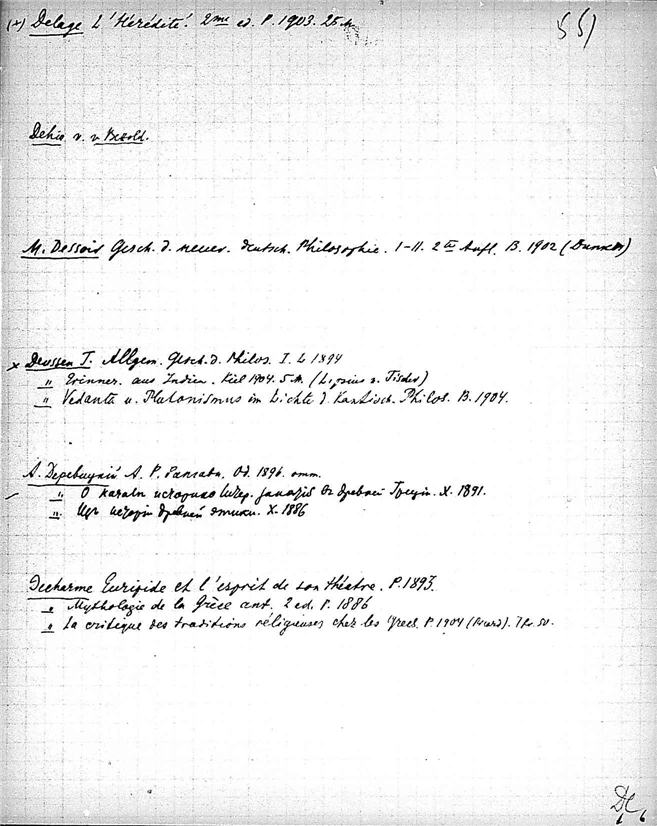 (+) Delage L'Hérédité. 2me ed. P. 1903. 25 M.
55)
Dehio v. v Bezold.
M. Dessoir Gesch. d. neuer. deutsch. Philosophie. I-II. 2te Aufl. B. 1902 (Dunker)
x Deussen T. Allgem. Gesch. d. Philos. I. L 1894
" Erinner. aus Indien. Kiel 1904. 5 M. (Lipsius u. Tischer)
" Vedanta u. Platonismus im Lichte d. Kantisch. Philos. B. 1904.
А. Деревицкий А. Р. Од. 1896. отт.
" О начале историко литер. занятiй въ древней Грецiи. Х. 1891.
" Изъ исторiи древней этики. Х. 1886
Decharme Euripide et l'esprit de son théatre. P. 1893.
" Mythologie de la Grèce ant. 2 ed. P. 1886
" La critique des traditions réligieuses chez les Grecs. P. 1904 (Picard). 7 fr. 50.